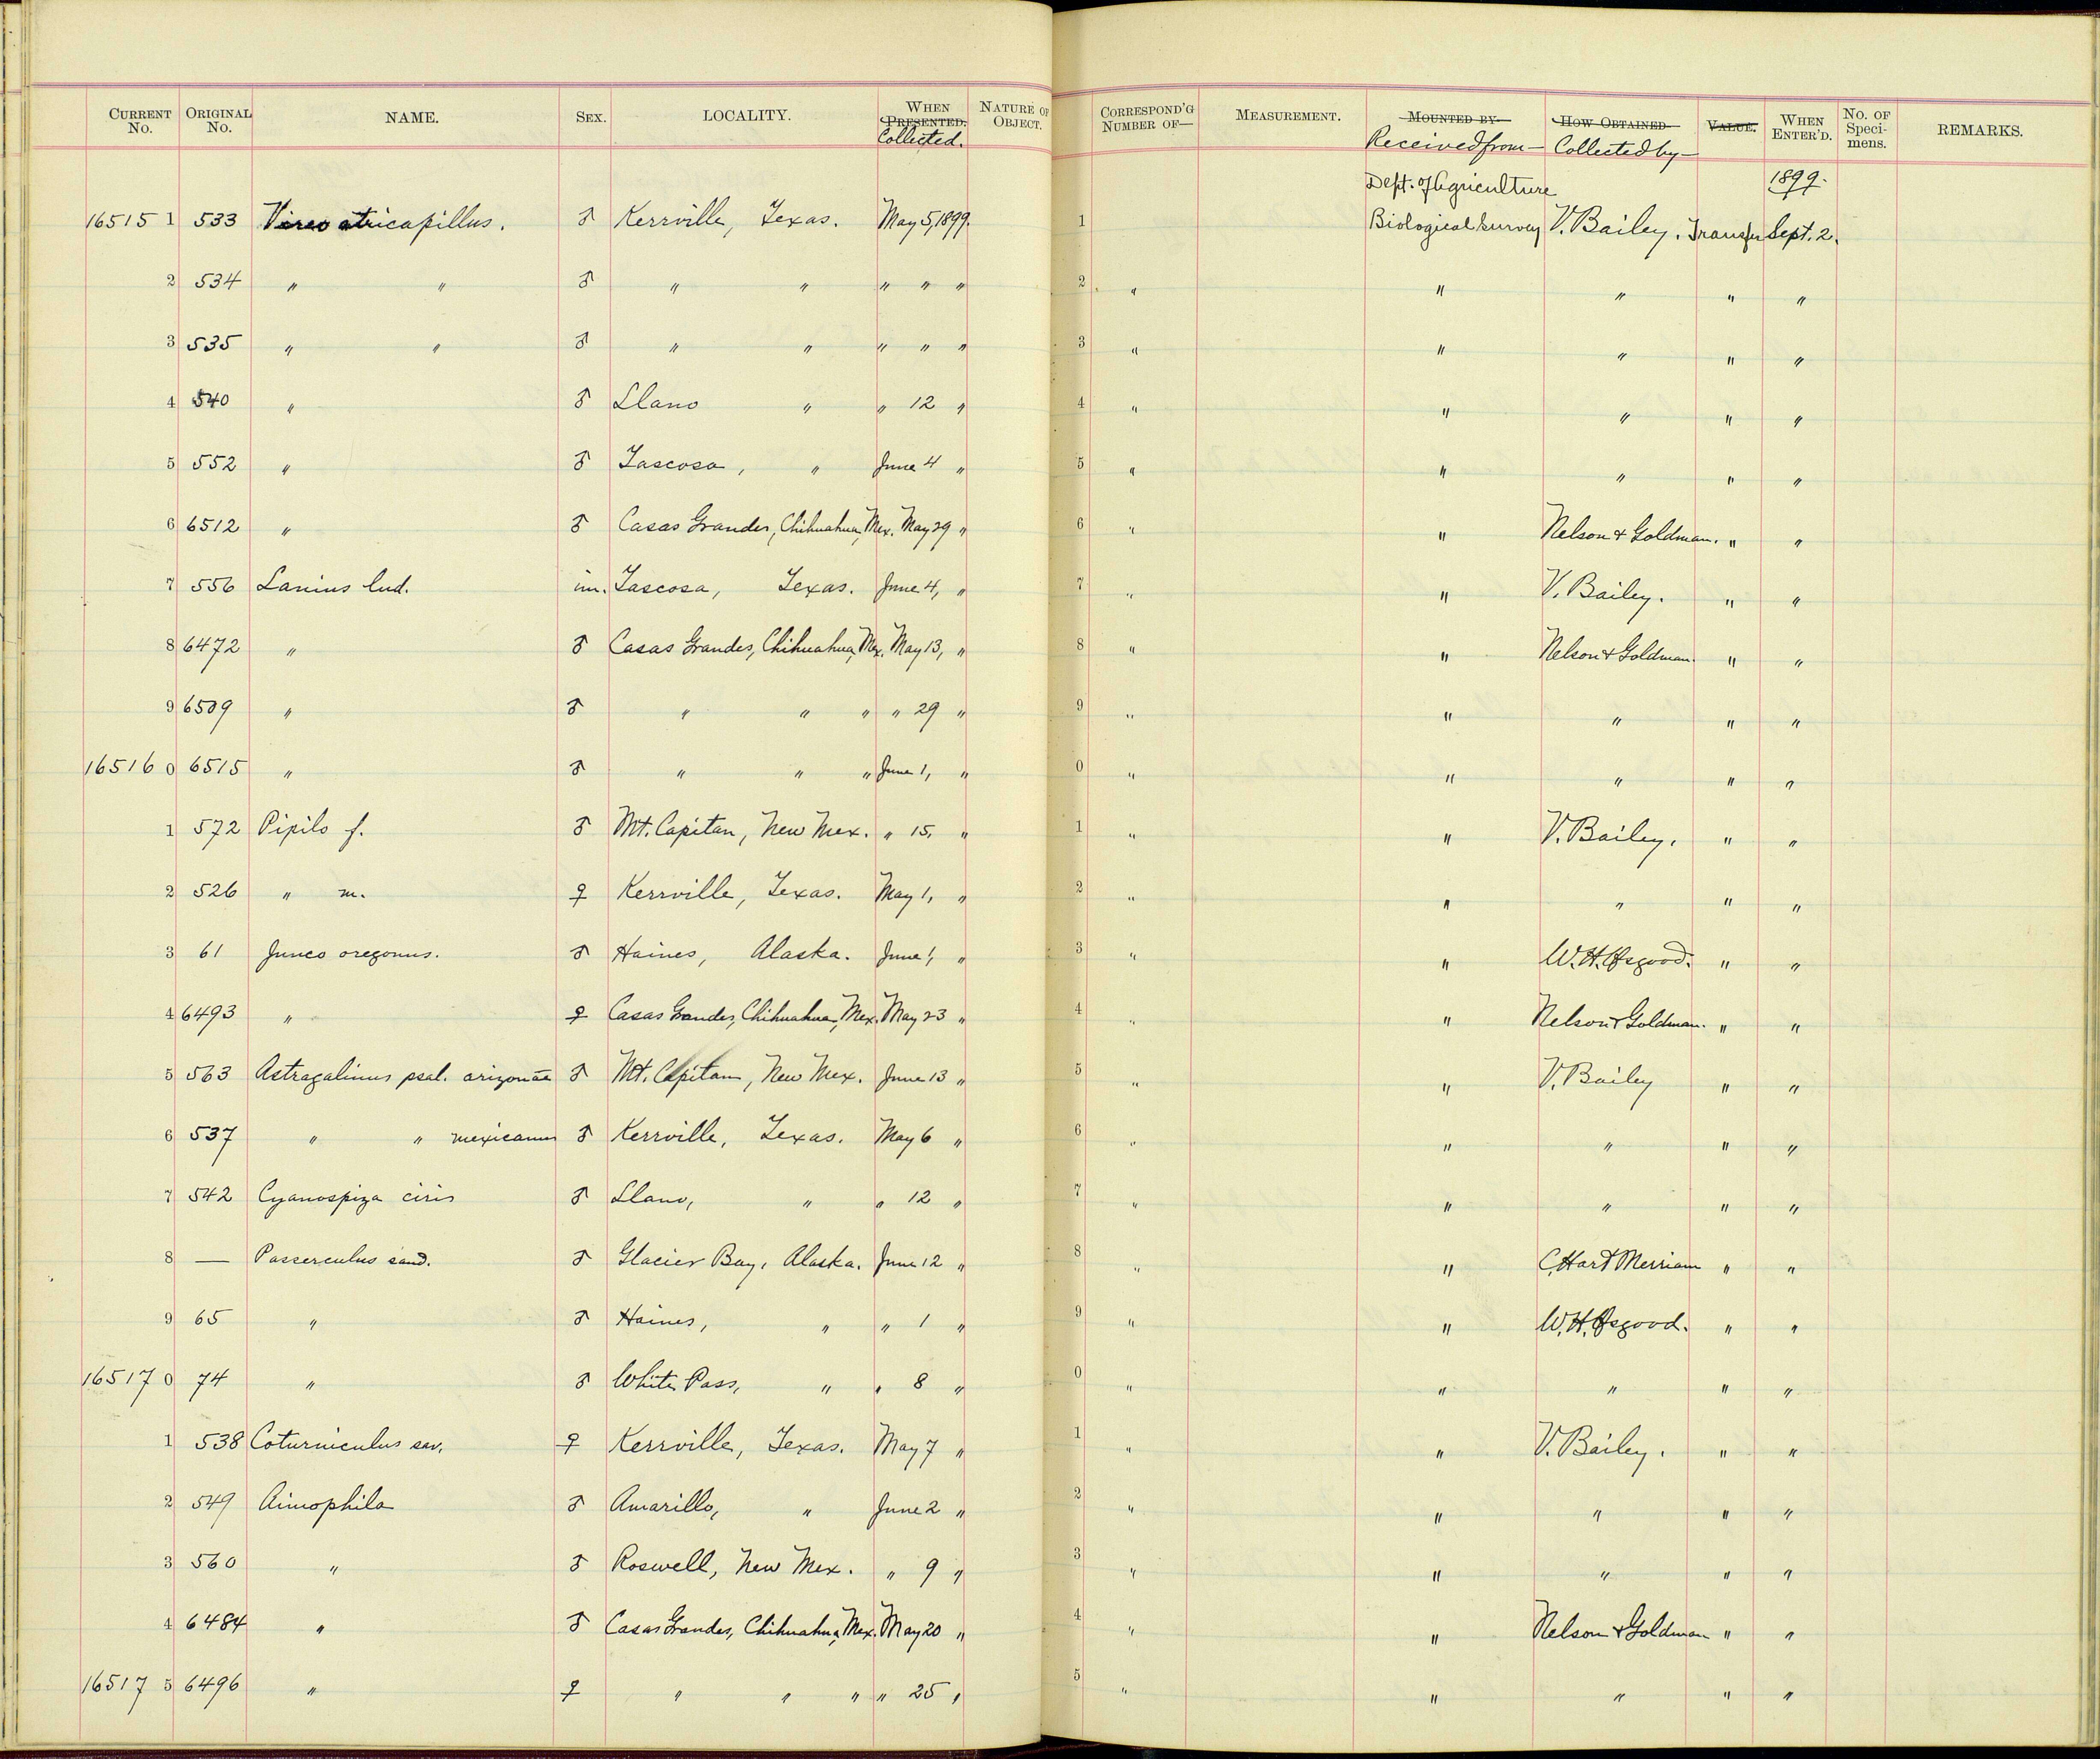 CURRENT No. ORIGINAL No. NAME. SEX. LOCALITY. WHEN PRESENTED. Collected. NATURE OF OBJECT. CORRESPOND'G NUMBER OF— MEASUREMENT. MOUNTED BY Received from— HOW OBTAINED Collected by— VALUE. WHEN ENTER'D. No. OF Specimens. REMARKS.
Dept. of Agriculture 1899.
16515 1 533 Vireo atricapillus. ♂ Kerrville, Texas. May 5, 1899. 1 Biological Survey V. Bailey. Transfer Sept. 2.
2 534 " " ♂ " " " " " 2 " " " " "
3 535 " " ♂ " " " " " 3 " " " " "
4 540 " ♂ Llano " " 12 " 4 " " " " "
5 552 " ♂ Tascosa, " June 4 " 5 " " " " "
6 6512 " ♂ Casas Grandes, Chihuahua, Mex. May 29 " 6 " " Nelson & Goldman. " "
7 556 Lanius lud. im. Tascosa, Texas. June 4, " 7 " " V. Bailey. " "
8 6472 " ♂ Casas Grandes, Chihuahua, Mex. May 13, " 8 " " Nelson & Goldman. " "
9 6509 " ♂ " " " " 29 " 9 " " " " "
16516 0 6515 " ♂ " " " June 1, " 0 " " " " "
1 572 Pipilo f. ♂ Mt. Capitan, New Mex. " 15, " 1 " " V. Bailey. " "
2 526 " m. ♀ Kerrville, Texas. May 1, " 2 " " " " "
3 61 Junco oregonus. ♂ Haines, Alaska. June 1, " 3 " " W. H. Osgood. " "
4 6493 " ♀ Casas Grandes, Chihuahua, Mex. May 23 " 4 " " Nelson & Goldman. " "
5 563 Astragalinus psal. arizonae ♂ Mt. Capitan, New Mex. June 13 " 5 " " V. Bailey " "
6 537 " " mexicanus ♂ Kerrville, Texas. May 6 " 6 " " " " "
7 542 Cyanospiza ciris ♂ Llano, " " 12 " 7 " " " " "
8 — Passerculus sand. ♂ Glacier Bay, Alaska. June 12 " 8 " " C. Hart Merriam " "
9 65 " ♂ Haines, " " 1 " 9 " " W. H. Osgood. " "
16517 0 74 " ♂ White Pass, " " 8 " 0 " " " " "
1 538 Coturniculus sav. ♀ Kerrville, Texas. May 7 " 1 " " V. Bailey. " "
2 549 Aimophila ♂ Amarillo, " June 2 " 2 " " " " "
3 560 " ♂ Roswell, New Mex. " 9 " 3 " " " " "
4 6484 " ♂ Casas Grandes, Chihuahua, Mex. May 20 " 4 " " Nelson & Goldman " "
16517 5 6496 " ♀ " " " " 25 " 5 " " " " "